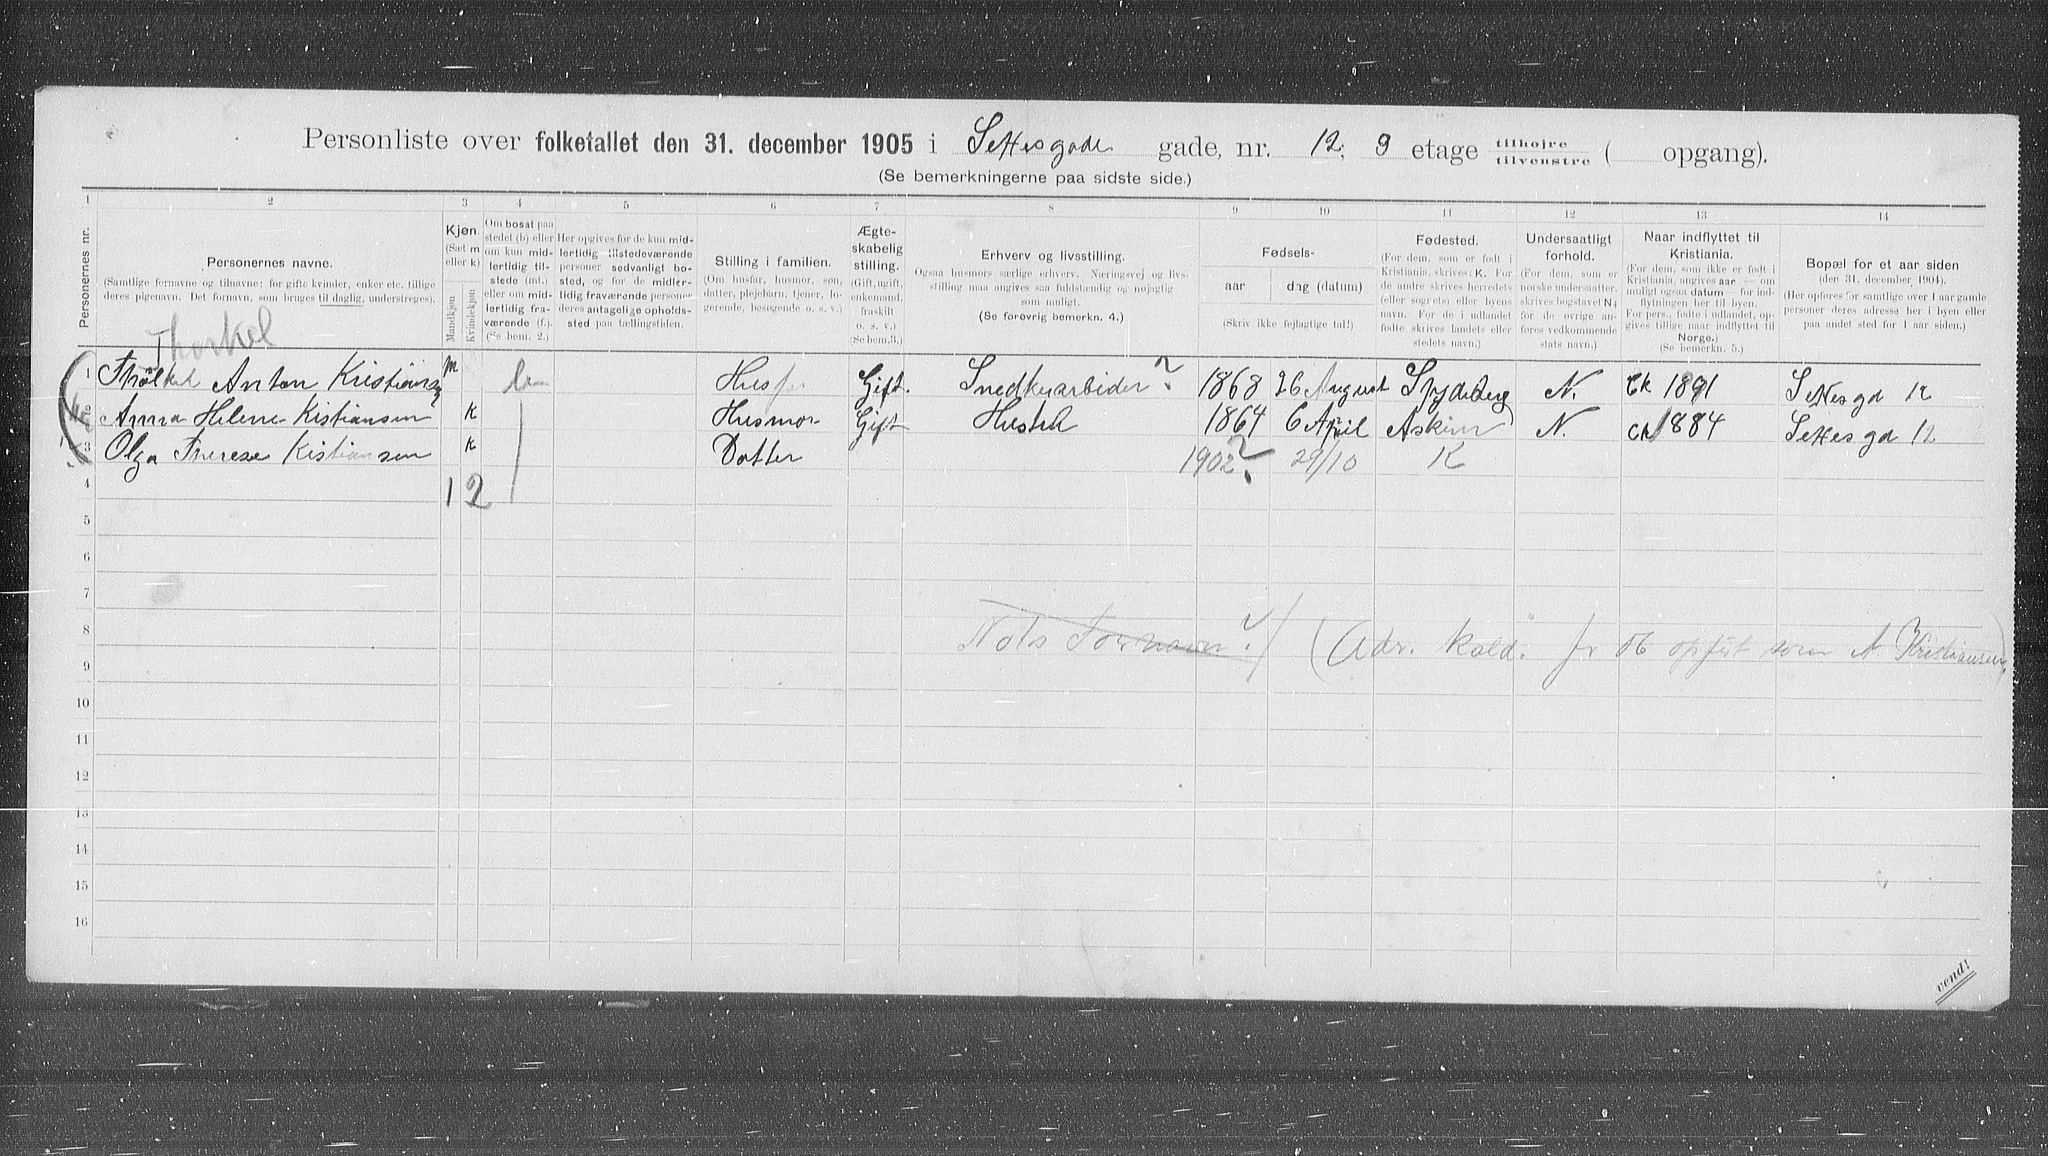 Personliste over folketallet den 31. december 1905 i Settesgade gade, nr. 12, 3 etage tilhøjre tilvenstre ( opgang).
(Se bemerkningerne paa sidste side.)
1 2 3 4 5 6 7 8 9 10 11 12 13 14
Personernes nr.
Personernes navne.
(Samtlige fornavne og tilnavne; for gifte kvinder, enker etc. tillige deres pigenavn. Det fornavn, som bruges til daglig, understreges).
Kjøn
(Sæt m eller k)
Mandkjøn
Kvindekjøn
Om bosat paa stedet (b) eller om kun midlertidig tilstede (mt.) eller om midlertidig fraværende (f.). (Se bem. 2.)
Her opgives for de kun midlertidig tilstedeværende personer sedvanligt bosted, og for de midlertidig fraværende personer deres antagelige opholdssted paa tællingstiden.
Stilling i familien.
(Om husfar, husmor, søn, datter, plejebarn, tjener, logerende, besøgende o. s. v.)
Ægteskabelig stilling.
(Gift, ugift, enkemand, fraskilt o. s. v.)
(Se bem. 3.)
Erhverv og livsstilling.
Ogsaa husmors særlige erhverv. Næringsvej og livsstilling maa angives saa fuldstændig og nøjagtig som muligt.
(Se forøvrig bemerkn. 4.)
Fødsels-
aar dag (datum)
(Skriv ikke fejlagtige tal!)
Fødested.
(For dem, som er født i Kristiania, skrives: K. For de andre skrives herredets (eller sognets) eller byens navn. For de i udlandet fødte skrives landets eller stedets navn.)
Undersaatligt forhold.
(For dem, som er norske undersaatter, skrives bogstavet N; for de øvrige anføres vedkommende stats navn.)
Naar indflyttet til Kristiania.
(For dem, som ikke er født i Kristiania, angives aar — om muligt ogsaa datum — for indflytningen her til byen. For pers., fødte i udlandet, opgives tillige naar indflyttet til Norge.)
(Se bemerkn. 5.)
Bopæl for et aar siden
(den 31. december 1904).
(Her opføres for samtlige over 1 aar gamle personer deres adresse her i byen eller paa andet sted for 1 aar siden.)
Thorkel
1 Anton Kristiansen m b Husfar Gift. Snedkerarbider ? 1868 26 August Spydeberg N. Ck 1891 Settesgd 12
2 Anna Helene Kistiansen k Husmor Gift Hustel 1864 6 April Askim N. Ck 1884 Settesgd 12
3 Olga Therese Kistiansen k Datter 1902 ? 29/10 K
4 1 2
5
6
7
8 Nols Fornavn ? / (Adr. kald. fr 06 opført som A. Kristiansen)
9
10
11
12
13
14
15
16
vend!